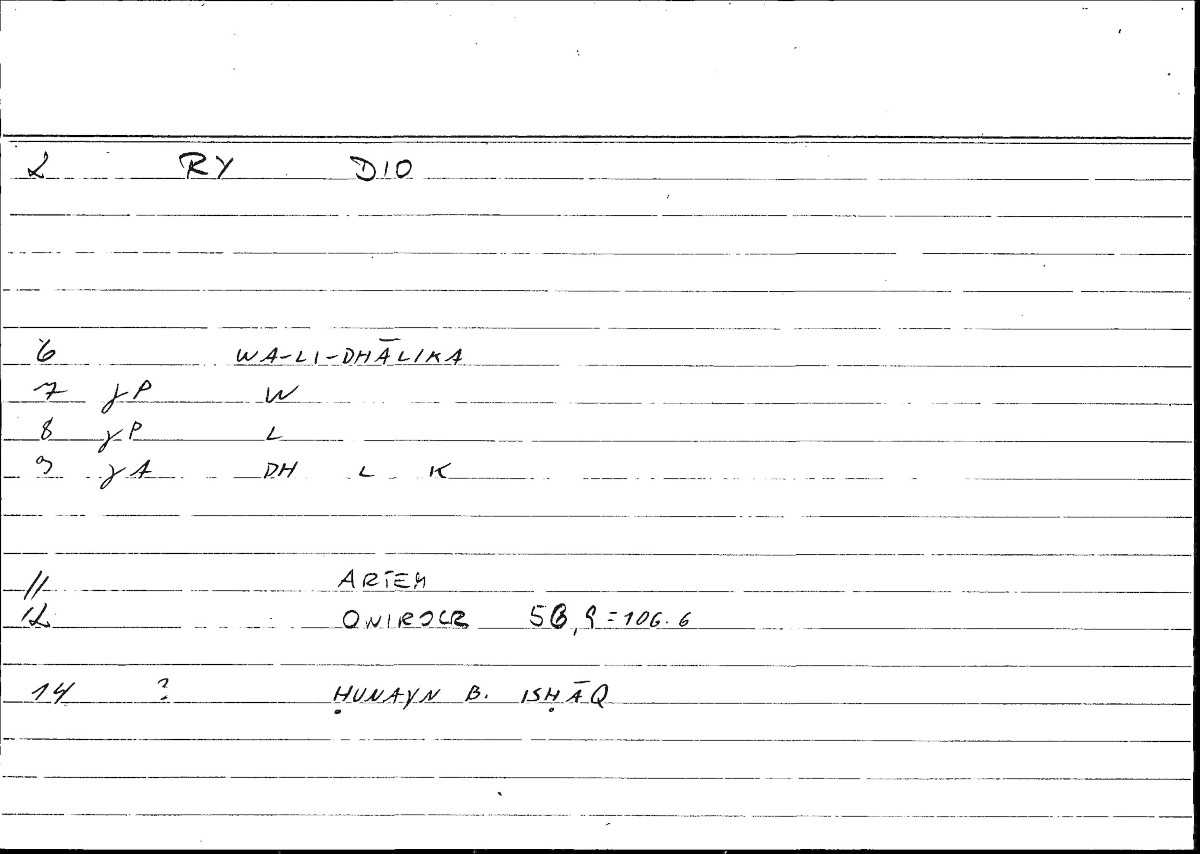 2 RY DIO
6 WA-LI-DHĀLIKA
7 γP W
8 γP L
9 γA DH L K
11 ARTEM
12 ONIROCR 58,9=106.6
14 ? ḤUNAYN B. ISḤĀQ